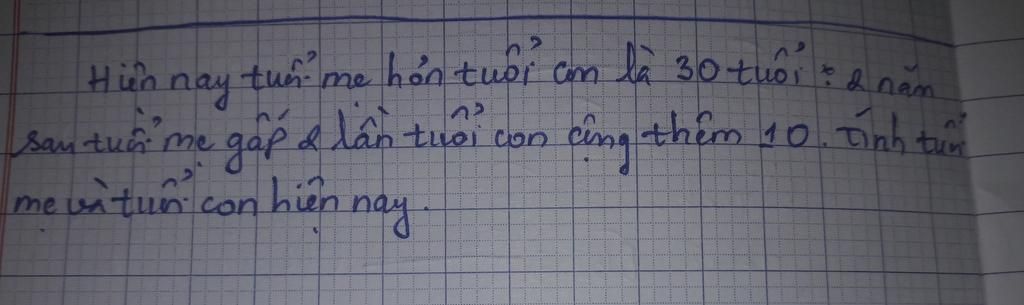 Hiện nay tuổi mẹ hơn tuổi con là 30 tuổi : 2 năm
sau tuổi mẹ gấp 2 lần tuổi con cộng thêm 10. Tính tuổi
mẹ và tuổi con hiện nay.